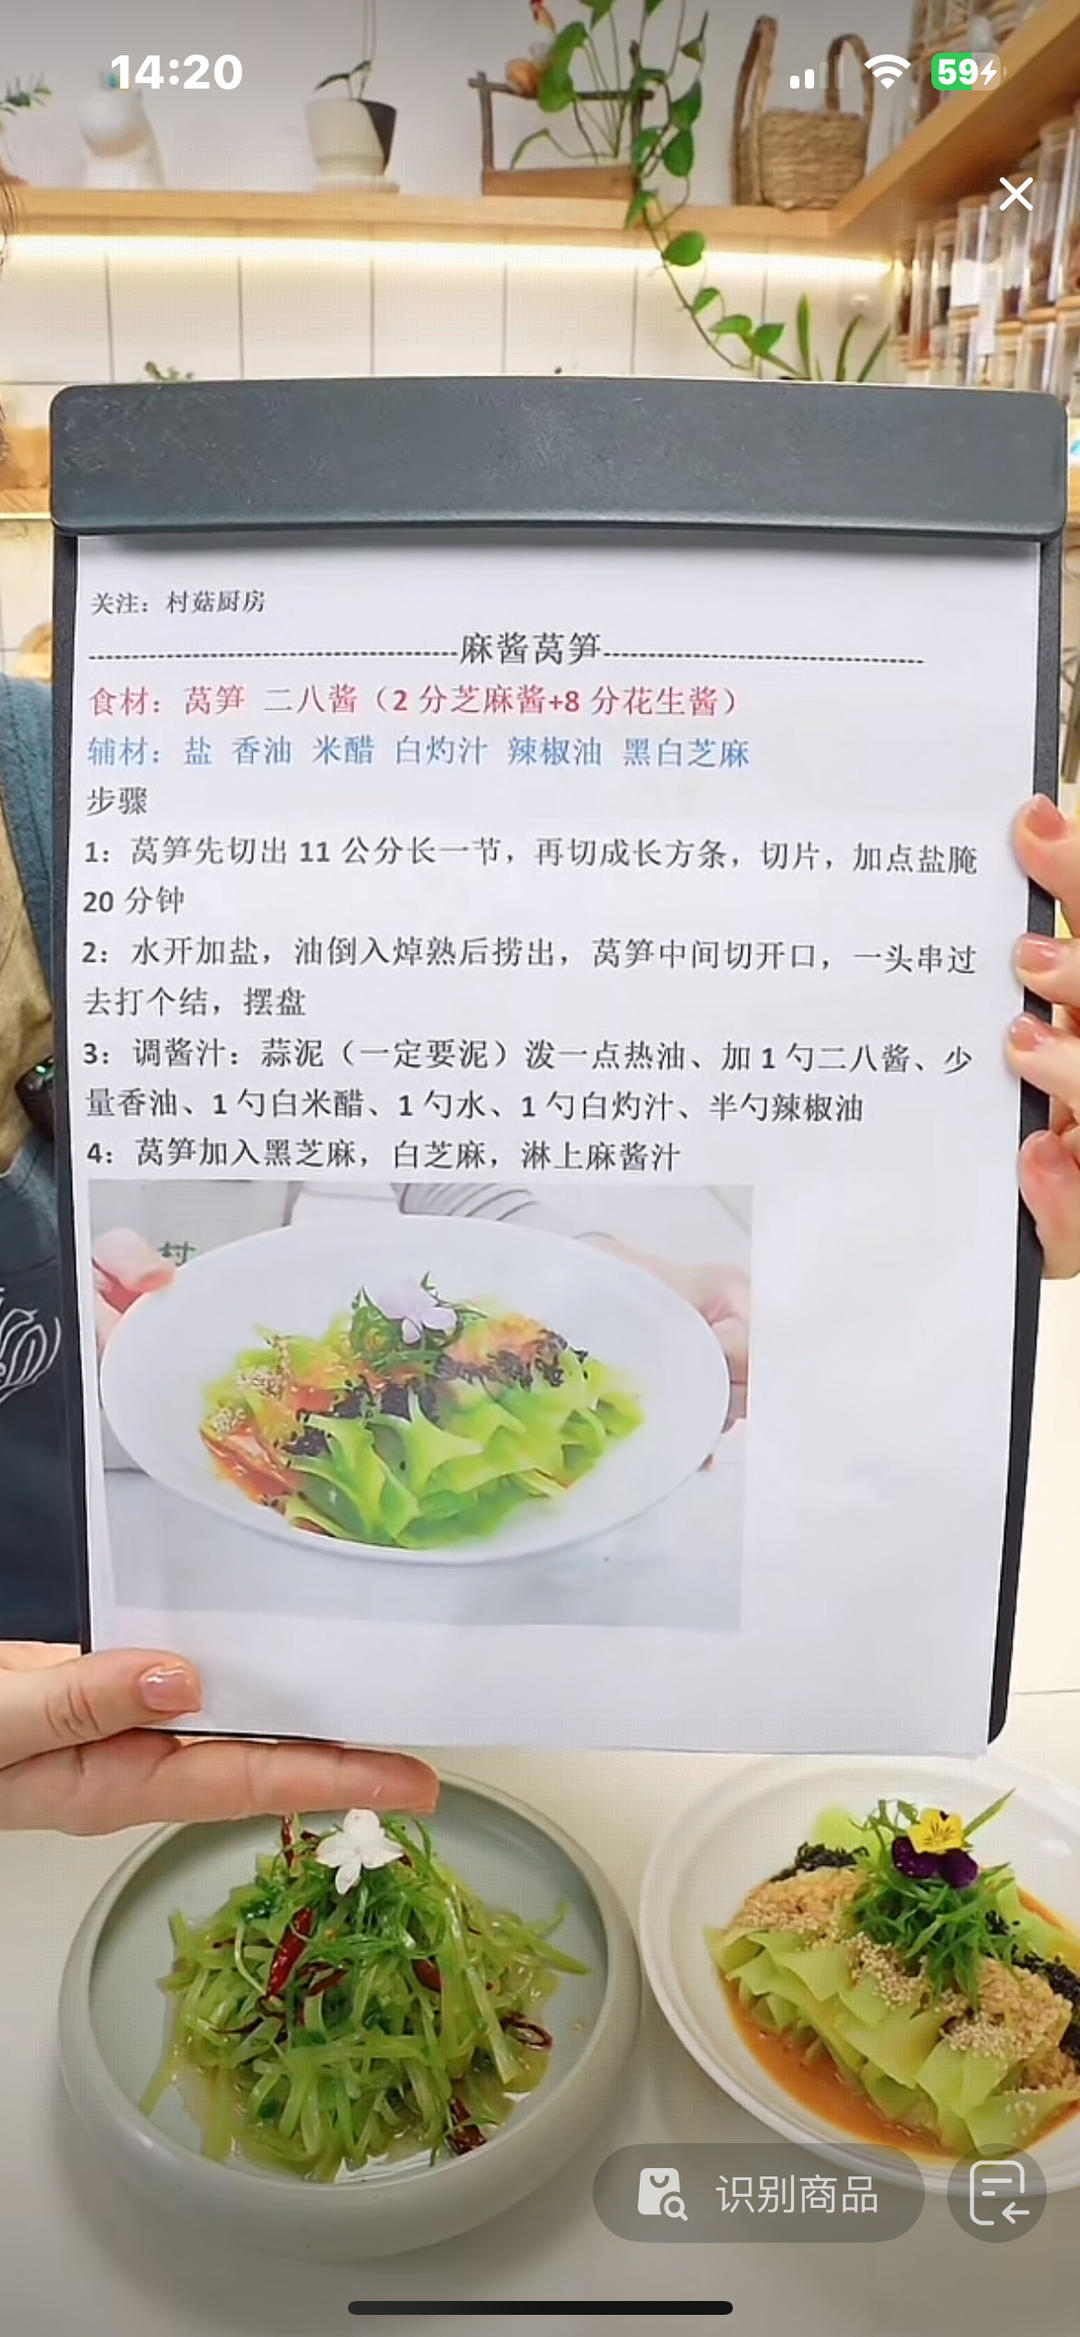 14:20
59
关注：村菇厨房
麻酱莴笋
食材：莴笋 二八酱（2 分芝麻酱+8 分花生酱）
辅材：盐 香油 米醋 白灼汁 辣椒油 黑白芝麻
步骤
1：莴笋先切出 11 公分长一节，再切成长方条，切片，加点盐腌
20 分钟
2：水开加盐，油倒入焯熟后捞出，莴笋中间切开口，一头串过
去打个结，摆盘
3：调酱汁：蒜泥（一定要泥）泼一点热油、加 1 勺二八酱、少
量香油、1 勺白米醋、1 勺水、1 勺白灼汁、半勺辣椒油
4：莴笋加入黑芝麻，白芝麻，淋上麻酱汁
村
识别商品